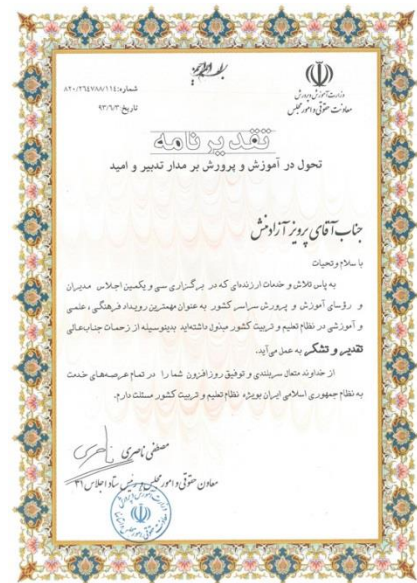 بسمه تعالی
وزارت آموزش و پرورش
معاونت حقوقی و امور مجلس
شماره: ۸۲۰/۲۶۴۷۸۸/۱۱۴
تاریخ ۹۳/۶/۳
تقدیرنامه
تحول در آموزش و پرورش بر مدار تدبیر و امید
جناب آقای پرویز آزادمنش
با سلام و تحیات
به پاس تلاش و خدمات ارزنده‌ای که در برگزاری سی و یکمین اجلاس مدیران
و رؤسای آموزش و پرورش سراسر کشور به عنوان مهمترین رویداد فرهنگی، علمی
و آموزشی در نظام تعلیم و تربیت کشور مبذول داشته‌اید بدینوسیله از زحمات جناب‌عالی
تقدیر و تشکر به عمل می‌آید.
از خداوند متعال سربلندی و توفیق روزافزون شما را در تمام عرصه‌های خدمت
به نظام جمهوری اسلامی ایران بویژه نظام تعلیم و تربیت کشور مسئلت دارم.
مصطفی ناصری
معاون حقوقی و امور مجلس و رئیس ستاد اجلاس ۳۱